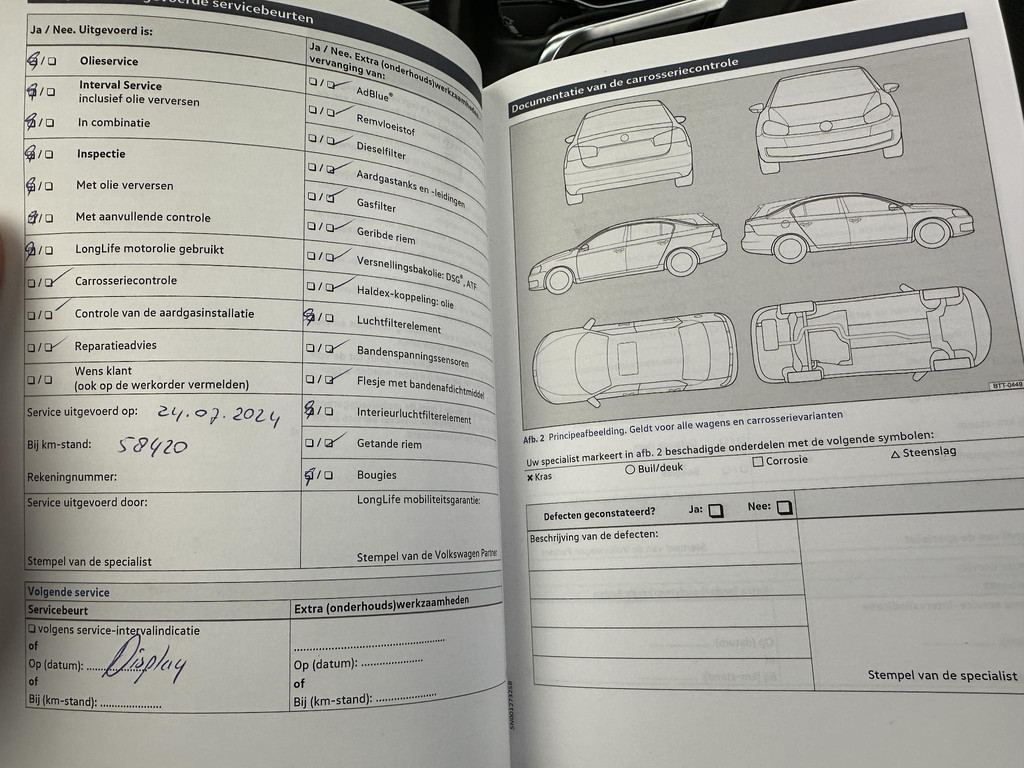 voerde servicebeurten
Ja / Nee. Uitgevoerd is:
/ Olieservice
/ Interval Service
inclusief olie verversen
/ In combinatie
/ Inspectie
/ Met olie verversen
/ Met aanvullende controle
/ LongLife motorolie gebruikt
/ Carrosseriecontrole
/ Controle van de aardgasinstallatie
/ Reparatieadvies
/ Wens klant
(ook op de werkorder vermelden)
Service uitgevoerd op: 24.07.2024
Bij km-stand: 58420
Rekeningnummer:
Service uitgevoerd door:
Stempel van de specialist
Ja / Nee. Extra (onderhouds)werkzaamheden
vervanging van:
/ AdBlue®
/ Remvloeistof
/ Dieselfilter
/ Aardgastanks en -leidingen
/ Gasfilter
/ Geribde riem
/ Versnellingsbakolie: DSG®, ATF
/ Haldex-koppeling: olie
/ Luchtfilterelement
/ Bandenspanningssensoren
/ Flesje met bandenafdichtmiddel
/ Interieurluchtfilterelement
/ Getande riem
/ Bougies
LongLife mobiliteitsgarantie:
Stempel van de Volkswagen Partner
Volgende service
Servicebeurt
❑ volgens service-intervalindicatie
of
Op (datum): .......... Display
of
Bij (km-stand): ....................
Extra (onderhouds)werkzaamheden
........................................
Op (datum): ....................
of
Bij (km-stand): ....................
SN001273258
Documentatie van de carrosseriecontrole
BTT-0449
Afb. 2 Principeafbeelding. Geldt voor alle wagens en carrosserievarianten
Uw specialist markeert in afb. 2 beschadigde onderdelen met de volgende symbolen:
✗ Kras ○ Buil/deuk □ Corrosie △ Steenslag
Defecten geconstateerd? Ja: ❑ Nee: ❑
Beschrijving van de defecten:
Stempel van de specialist